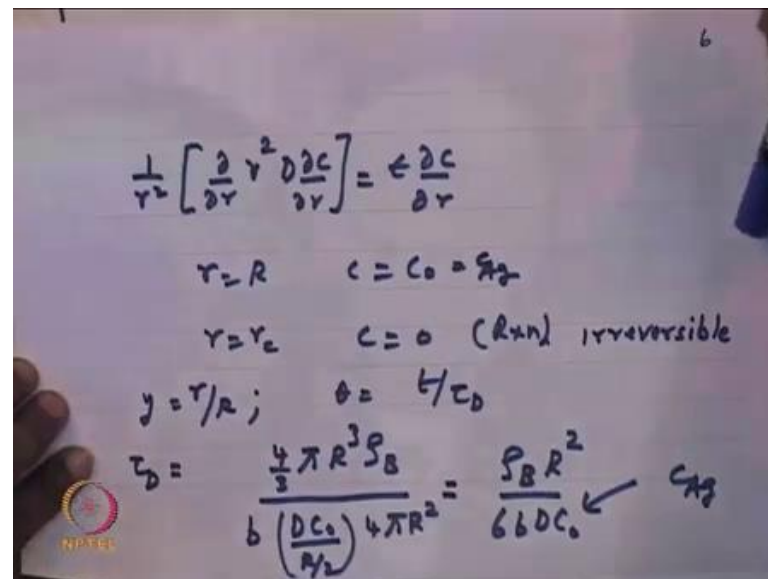 6
1/r² [∂/∂r r² D ∂c/∂r] = ε ∂c/∂r
r = R    c = C₀ = C_Ag
r = r_c    c = 0 (Rxn) irreversible
y = r/R ;    θ = t/τ_D
τ_D = (4/3 π R³ ρ_B) / (b (DC₀ / R/2) 4πR²) = ρ_B R² / 6bDC₀ ← C_Ag
NPTEL